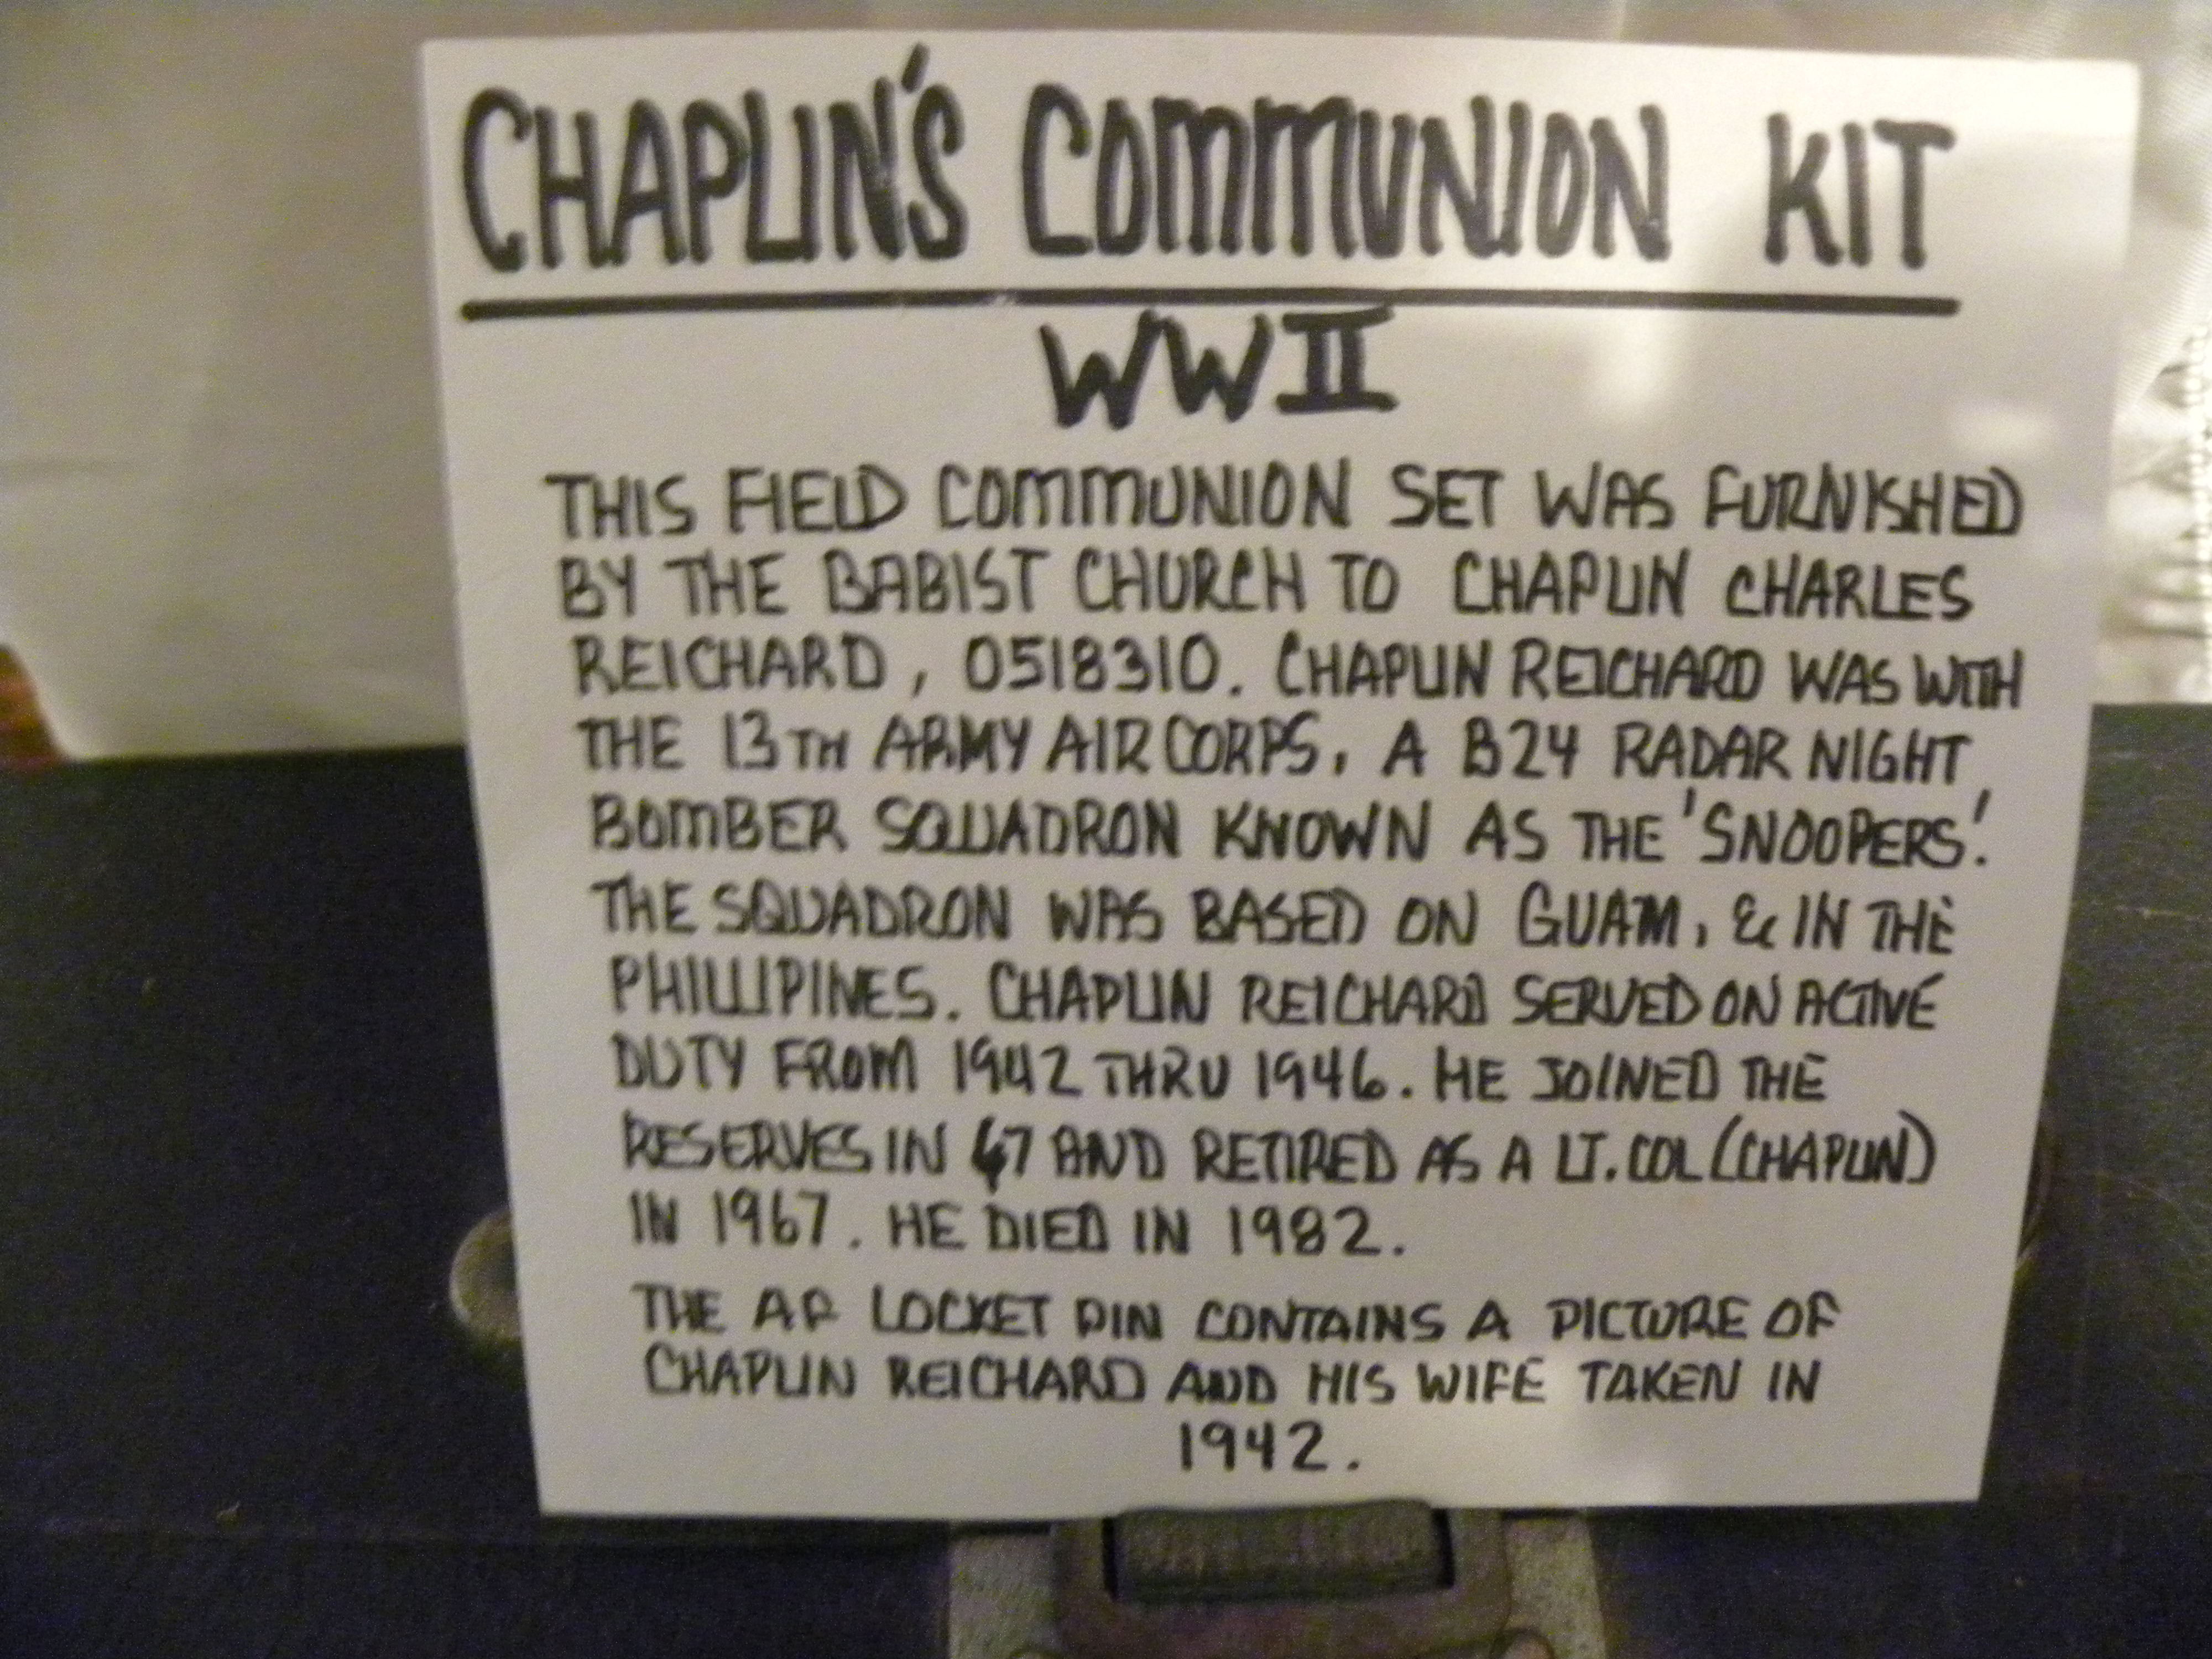 CHAPLIN'S COMMUNION KIT
WWII
THIS FIELD COMMUNION SET WAS FURNISHED
BY THE BABIST CHURCH TO CHAPLIN CHARLES
REICHARD, 0518310. CHAPLIN REICHARD WAS WITH
THE 13TH ARMY AIR CORPS, A B24 RADAR NIGHT
BOMBER SQUADRON KNOWN AS THE 'SNOOPERS'.
THE SQUADRON WAS BASED ON GUAM, & IN THE
PHILLIPINES. CHAPLIN REICHARD SERVED ON ACTIVE
DUTY FROM 1942 THRU 1946. HE JOINED THE
RESERVES IN 47 AND RETIRED AS A LT. COL (CHAPLIN)
IN 1967. HE DIED IN 1982.
THE AF LOCKET PIN CONTAINS A PICTURE OF
CHAPLIN REICHARD AND HIS WIFE TAKEN IN
1942.